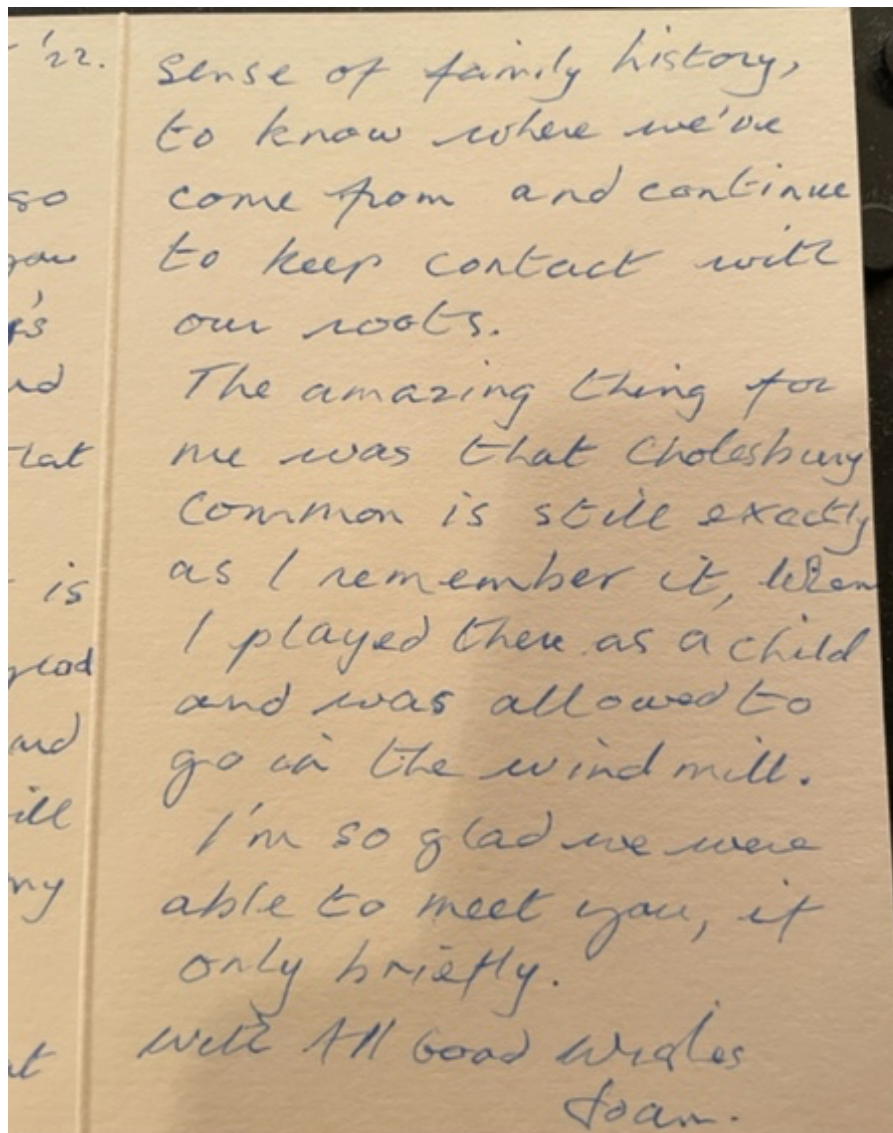 '22.
so
you
's
lat
is
glad
and
ill
my
at
sense of family history,
to know where we've
come from and continue
to keep contact with
our roots.
The amazing thing for
me was that Cholesbury
Common is still exactly
as I remember it, when
I played there as a child
and was allowed to
go in the wind mill.
I'm so glad we were
able to meet you, if
only briefly.
with All Good Wishes
Joan.